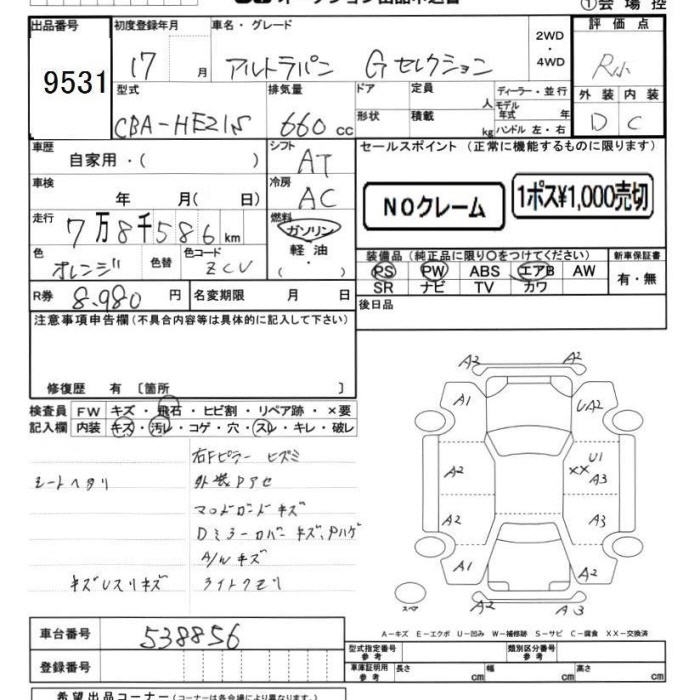 ①会場控
出品番号 初度登録年月 車名・グレード 2WD・4WD 評価点
9531 17 月 アルトラパン Gセレクション R小
型式 排気量 ドア 定員 人 ディーラー・並行 外装 内装
CBA-HE21S 660 cc 形状 積載 kg モデル年式 年 ハンドル 左・右 D C
車歴 自家用・( ) シフト AT セールスポイント (正常に機能するものに限ります)
車検 年 月( 日) 冷房 AC NOクレーム 1ポス¥1,000売切
走行 7万8千586km 燃料 ガソリン 軽油 ( ・ )
色 オレンジ 色替 色コード ZCU 装備品 (純正品に限り○をつけてください) 新車保証書
PS PW ABS エアB AW 有・無
SR ナビ TV カワ
R券 8.980 円 名変期限 月 日 後日品
注意事項申告欄(不具合内容等は具体的に記入して下さい)
修復歴 有 〔箇所 〕
検査員 FW キズ・飛石・ヒビ割・リペア跡・×要
記入欄 内装 キズ・汚レ・コゲ・穴・スレ・キレ・破レ
右Fピラー ヒズミ
シートヘタリ 外装Pアセ
キズ
Dミラーカバー キズ、Pハゲ
A/W キズ
キズUスリキズ ライトクモリ
A2 A2
A1 UA2
A2 U1
XX A3
A2 A3
A1 A2
スペア A2 A3
A-キズ E-エクボ U-凹み W-補修跡 S-サビ C-腐食 XX-交換済
車台番号 538856 型式指定番号 参考 類別区分番号 参考
登録番号 車庫証明用 参考 長さ cm 幅 cm 高さ cm
希望出品コーナー(コーナーは各会場により異なります)